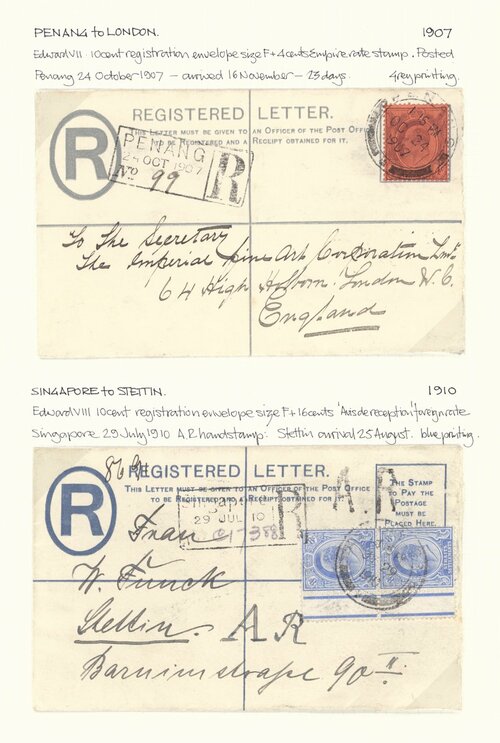 PENANG to LONDON. 1907
Edward VII 10cent registration envelope size F + 4cents Empire rate stamp. Posted
Penang 24 October 1907 – arrived 16 November – 23 days. 4 rey printing.
REGISTERED LETTER.
THIS LETTER MUST BE GIVEN TO AN OFFICER OF THE POST OFFICE
TO BE REGISTERED AND A RECEIPT OBTAINED FOR IT.
R
PENANG
24 OCT 1907
No 99
R
To The Secretary
The Imperial Fine Art Corporation Lmtd
64 High Holborn. London W.C.
England
SINGAPORE to STETTIN. 1910
Edward VIII 10cent registration envelope size F + 16cents 'Avis de reception' foreign rate
Singapore 29 July 1910 A.R. handstamp. Stettin arrival 25 August. blue printing.
REGISTERED LETTER.
THIS LETTER MUST BE GIVEN TO AN OFFICER OF THE POST OFFICE
TO BE REGISTERED AND A RECEIPT OBTAINED FOR IT.
R
A.R
THE STAMP
TO PAY THE
POSTAGE
MUST BE
PLACED HERE.
Singapore
29 JUL 10
R
Frau
W. Funck
Stettin. AR
Barnimstrasse 90 II.